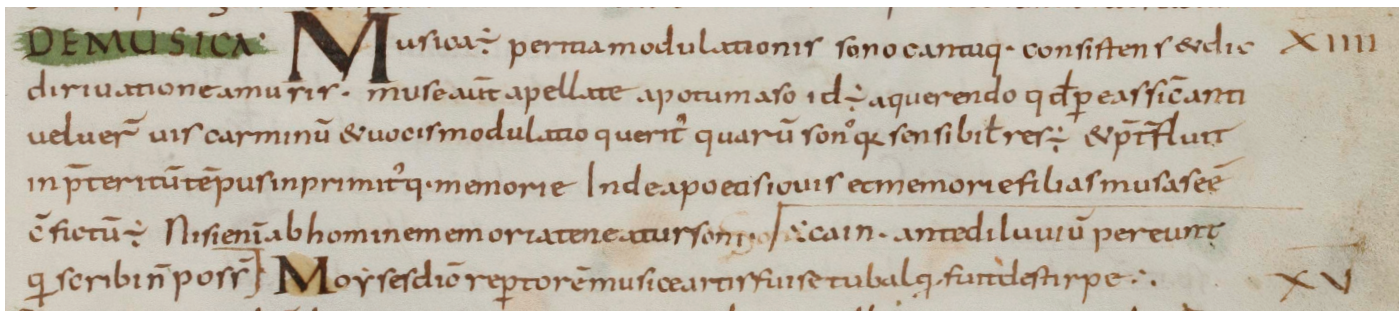 DE MUSICA· Musica ÷ peritia modulationis sono cantuq· consistens & dic XIIII
dirivatione a musis · muse aūt apellate apotumaso id ÷ a querendo qd̄ p̱ eas sic̄ anti
veluer̄ vis carminū & vocis modulatio querit᷒ quarū son᷒ q sensibil̄ res ÷ & p̄t̄fluit
in p̄teritū tēpus inprimit᷒q· memorie Inde a poetis iovis et memorie filias musas eē
c̄fictū ÷ Nisi enī ab homine memoria teneatur soni cain · ante diluviū pereunt
q scribi n̄ poss̄ Moẏses dic̄ rep̱torē musice artis fuise tubal q· fuit de stirpe ·:· XV